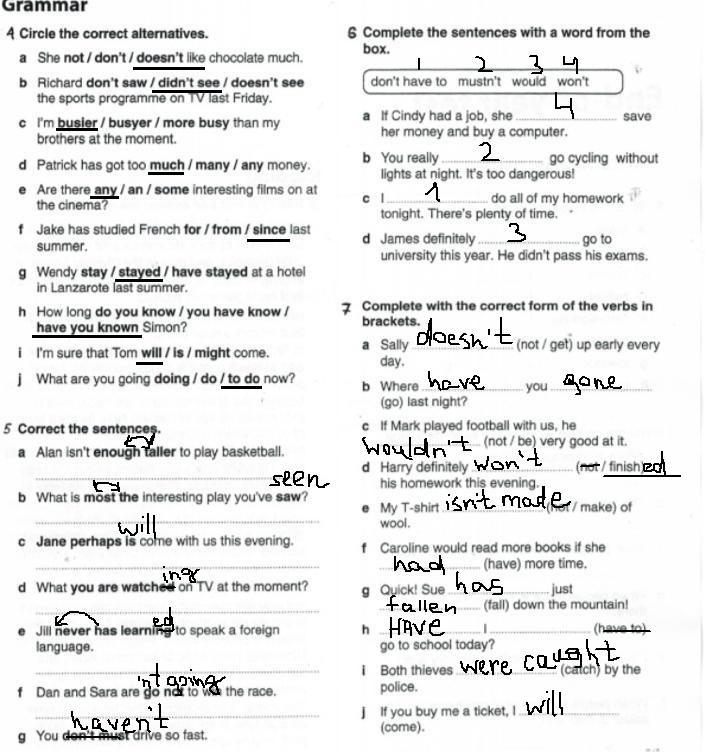 Grammar
4 Circle the correct alternatives.
a She not / don't / doesn't like chocolate much.
b Richard don't saw / didn't see / doesn't see
the sports programme on TV last Friday.
c I'm busier / busyer / more busy than my
brothers at the moment.
d Patrick has got too much / many / any money.
e Are there any / an / some interesting films on at
the cinema?
f Jake has studied French for / from / since last
summer.
g Wendy stay / stayed / have stayed at a hotel
in Lanzarote last summer.
h How long do you know / you have know /
have you known Simon?
i I'm sure that Tom will / is / might come.
j What are you going doing / do / to do now?
5 Correct the sentences.
a Alan isn't enough taller to play basketball.
seen
b What is most the interesting play you've saw?
will
c Jane perhaps is come with us this evening.
ing
d What you are watched on TV at the moment?
ed
e Jill never has learning to speak a foreign
language.
n't going
f Dan and Sara are go not to win the race.
haven't
g You don't must drive so fast.
6 Complete the sentences with a word from the
box.
1 2 3 4
don't have to mustn't would won't
a If Cindy had a job, she 4 save
her money and buy a computer.
b You really 2 go cycling without
lights at night. It's too dangerous!
c I 1 do all of my homework
tonight. There's plenty of time.
d James definitely 3 go to
university this year. He didn't pass his exams.
7 Complete with the correct form of the verbs in
brackets.
a Sally doesn't (not / get) up early every
day.
b Where have you gone
(go) last night?
c If Mark played football with us, he
wouldn't (not / be) very good at it.
d Harry definitely won't (not / finish) ed
his homework this evening.
e My T-shirt isn't made (not / make) of
wool.
f Caroline would read more books if she
had (have) more time.
g Quick! Sue has just
fallen (fall) down the mountain!
h HAVE I (have to)
go to school today?
i Both thieves were caught (catch) by the
police.
j If you buy me a ticket, I will
(come).